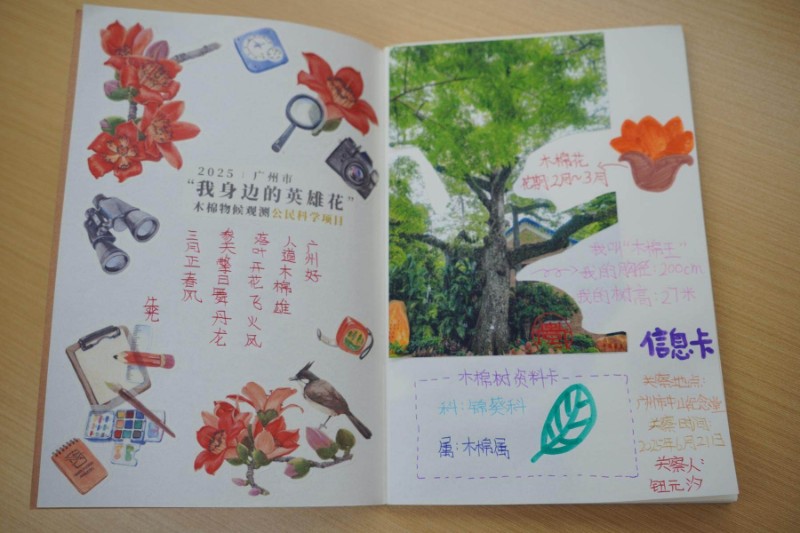 2025 | 广州市
“我身边的英雄花”
木棉物候观测公民科学项目
广州好
人道木棉雄
落叶开花飞火凤
参天擎日舞丹龙
三月正春风
朱光
木棉花
花期2月~3月
我叫“木棉王”
我的胸径:200cm
我的树高:27米
信息卡
木棉树资料卡
科:锦葵科
属:木棉属
观察地点:
广州市中山纪念堂
观察时间:
2025年6月21日
观察人:
钮元汐